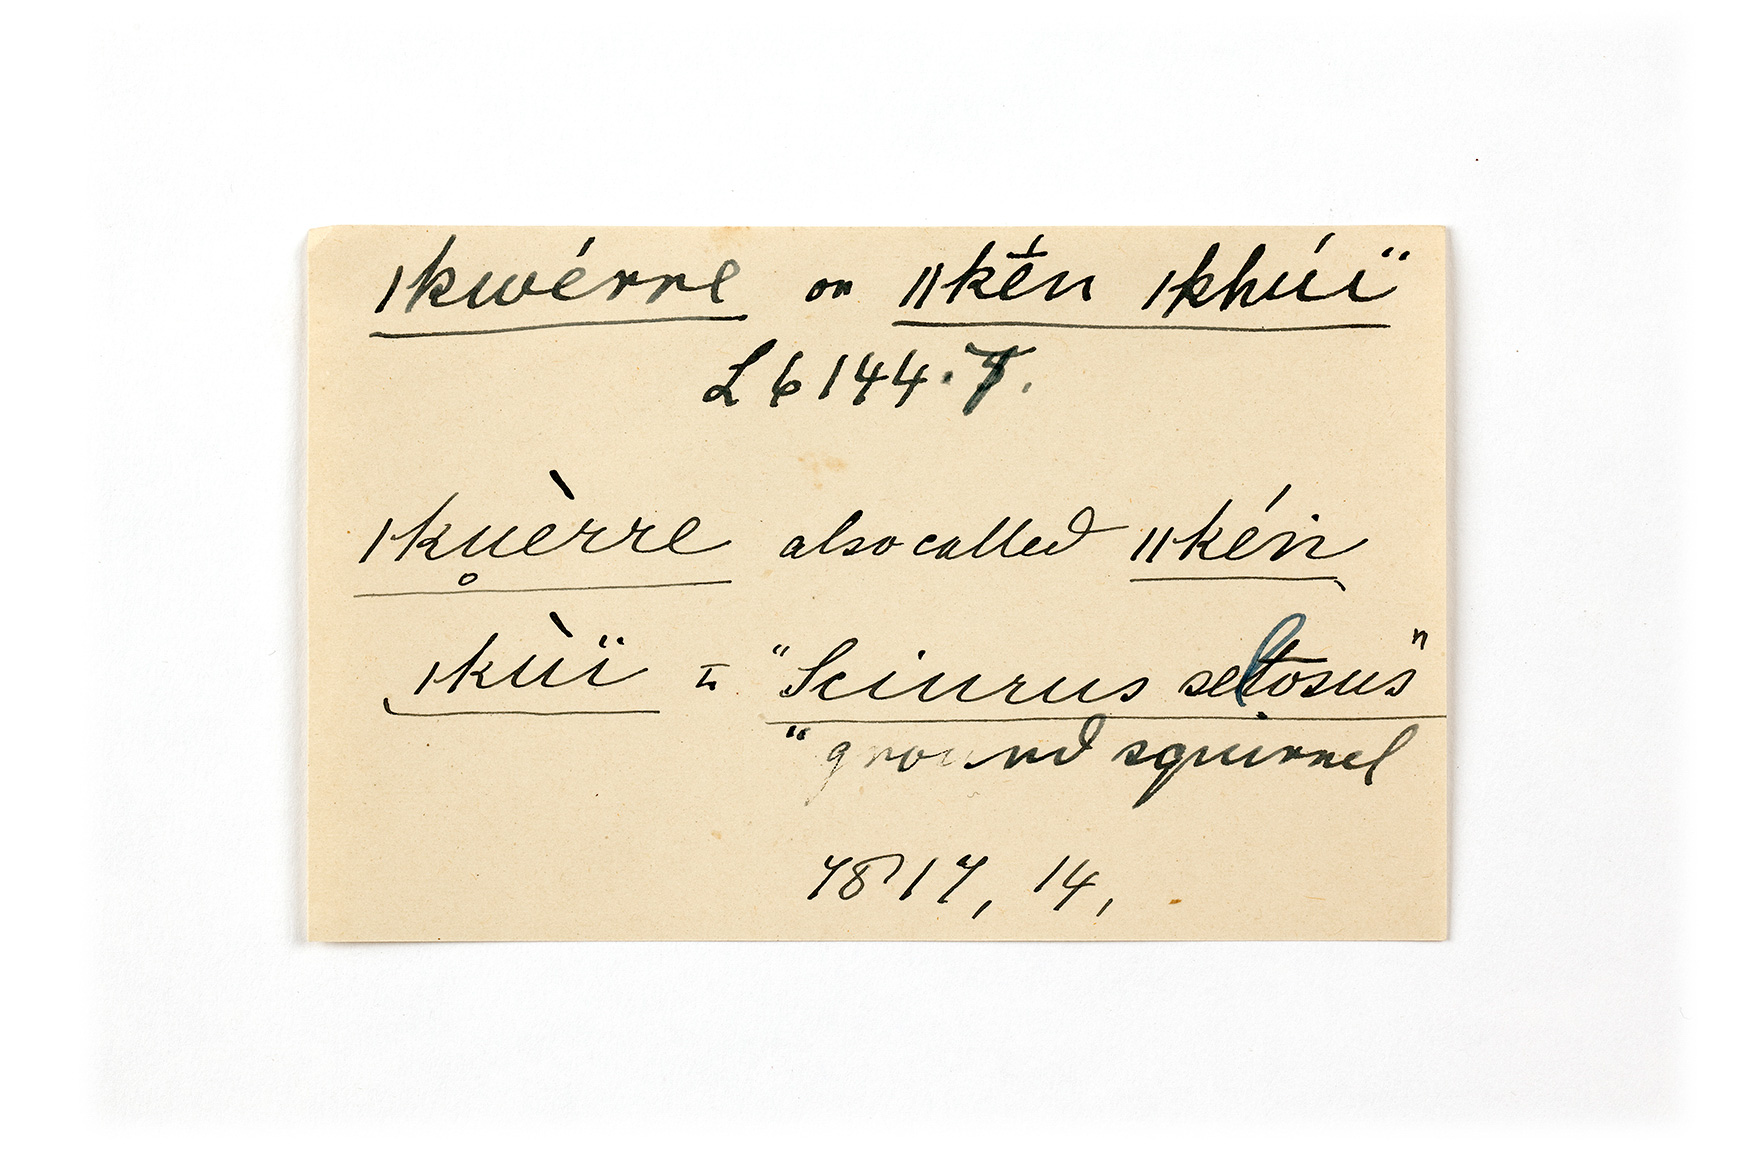 ǀkwérre or ǁkḗn ǀkhúï
L 6144.7.
ǀku̥èrre also called ǁkén
ǀkùï = "Sciurus setosus"
"ground squirrel
7817, 14,